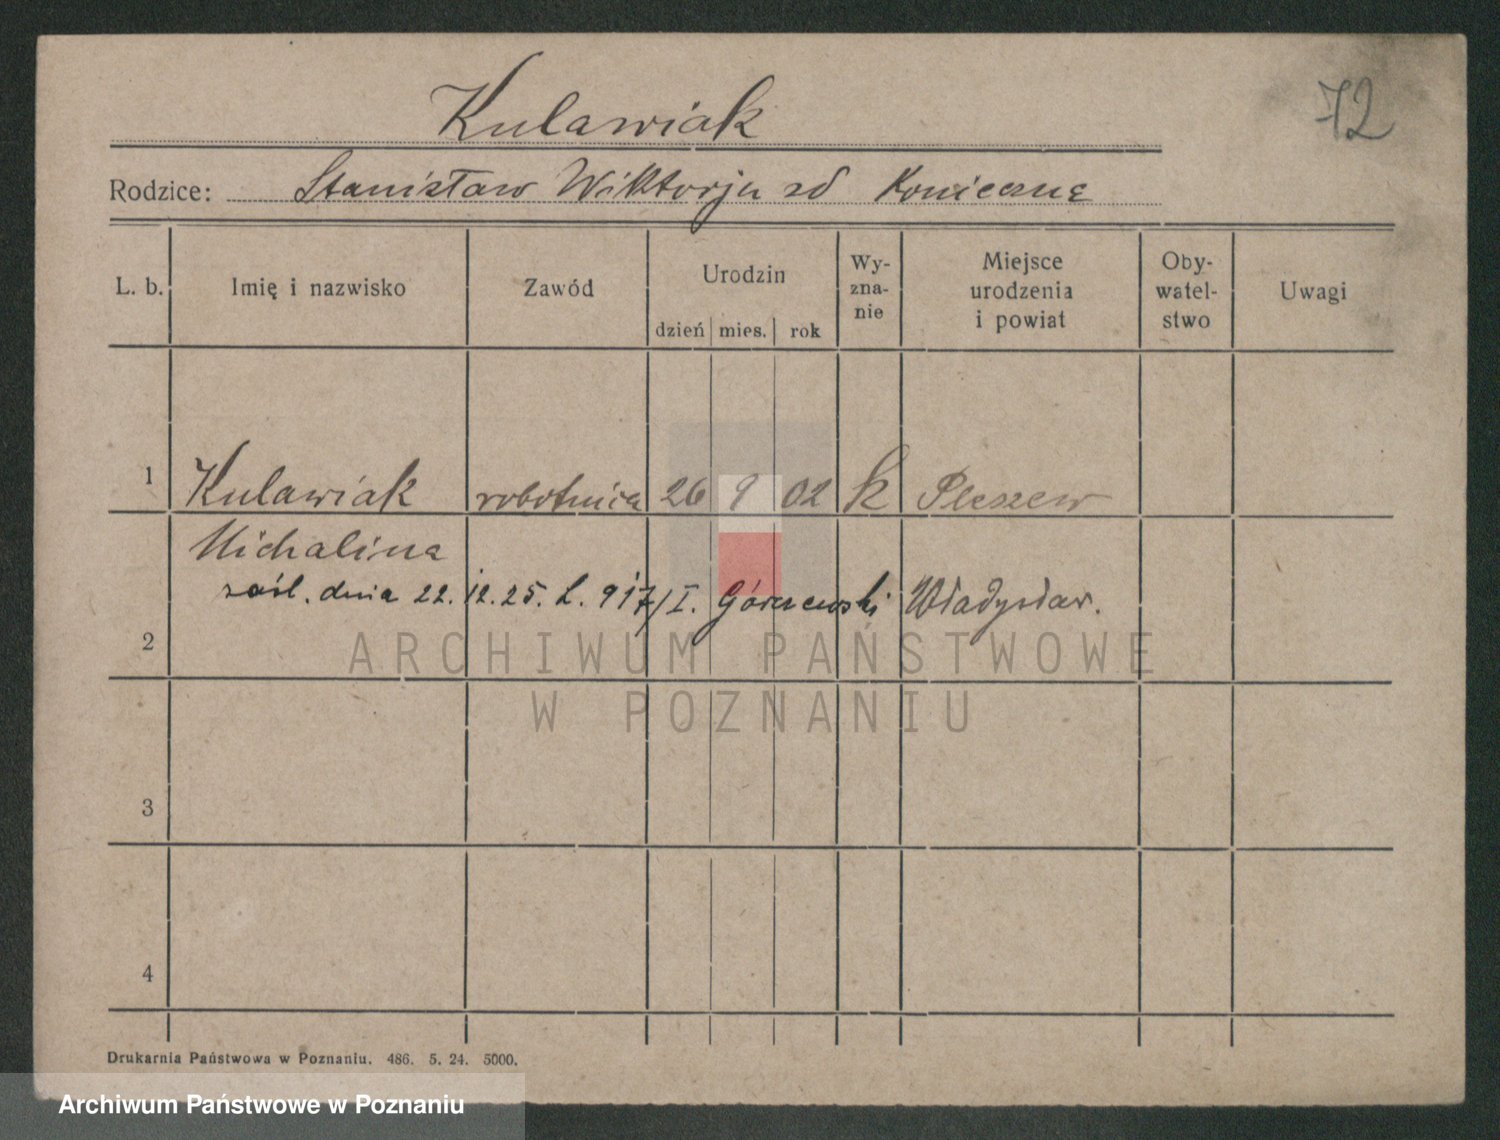 Kulawiak
72
Rodzice: Stanisław Wiktorja zd Konieczne
L. b. Imię i nazwisko Zawód Urodzin dzień mies. rok Wy-zna-nie Miejsce urodzenia i powiat Oby-watel-stwo Uwagi
1 Kulawiak robotnica 26 9 02 k Pleszew
Michalina
zaśl. dnia 22.12.25. L. 917/I. Górczewski Władysław.
2
ARCHIWUM PAŃSTWOWE
W POZNANIU
3
4
Drukarnia Państwowa w Poznaniu. 486. 5. 24. 5000.
Archiwum Państwowe w Poznaniu